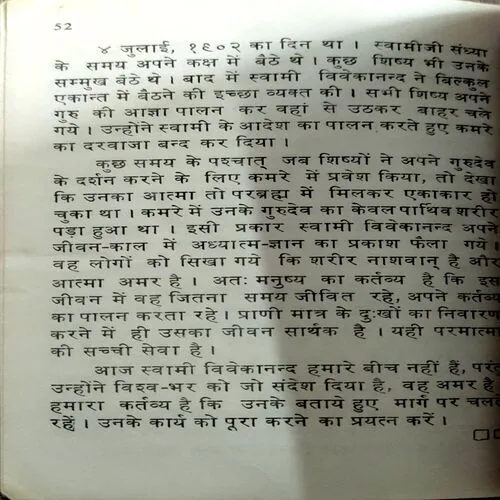 52
४ जुलाई, १९०२ का दिन था । स्वामीजी संध्या
के समय अपने कक्ष में बैठे थे । कुछ शिष्य भी उनके
सम्मुख बैठे थे । बाद में स्वामी विवेकानन्द ने बिल्कुल
एकान्त में बैठने की इच्छा व्यक्त की । सभी शिष्य अपने
गुरु की आज्ञा पालन कर वहां से उठकर बाहर चले
गये । उन्होंने स्वामी के आदेश का पालन करते हुए कमरे
का दरवाजा बन्द कर दिया ।
कुछ समय के पश्चात् जब शिष्यों ने अपने गुरुदेव
के दर्शन करने के लिए कमरे में प्रवेश किया, तो देखा
कि उनका आत्मा तो परब्रह्म में मिलकर एकाकार हो
चुका था । कमरे में उनके गुरुदेव का केवल पार्थिव शरीर
पड़ा हुआ था । इसी प्रकार स्वामी विवेकानन्द अपने
जीवन-काल में अध्यात्म-ज्ञान का प्रकाश फैला गये ।
वह लोगों को सिखा गये कि शरीर नाशवान् है और
आत्मा अमर है । अतः मनुष्य का कर्तव्य है कि इस
जीवन में वह जितना समय जीवित रहे, अपने कर्तव्य
का पालन करता रहे । प्राणी मात्र के दुःखों का निवारण
करने में ही उसका जीवन सार्थक है । यही परमात्मा
की सच्ची सेवा है ।
आज स्वामी विवेकानन्द हमारे बीच नहीं हैं, परंतु
उन्होंने विश्व-भर को जो संदेश दिया है, वह अमर है
हमारा कर्तव्य है कि उनके बताये हुए मार्ग पर चलते
रहें । उनके कार्य को पूरा करने का प्रयत्न करें ।